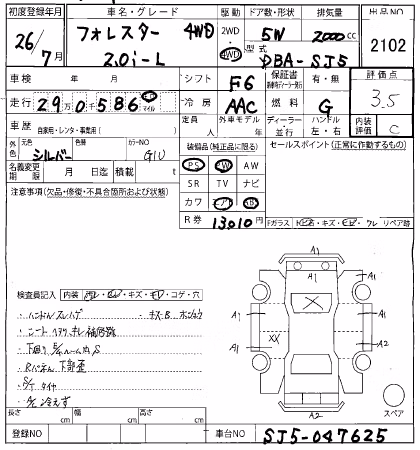 初度登録年月 車名・グレード 駆動 ドア数・形状 排気量 出品NO
26/7月 フォレスター 4WD 2WD・4WD 5W 2000cc 2102
2.0i-L 型式 DBA-SJ5
車検 年 月 シフト F6 保証書 有・無 評価点
走行 29万0千586 km マイル 冷房 AAC 燃料 G 3.5
車歴 自家用・レンタ・事業用( ) 定員 人 外車モデル 年 ディーラー 並行 ハンドル 左・右 内装評価 C
外色 元色 シルバー 色替 カラーNO G1U 装備品(純正品に限る) セールスポイント(正常に作動するもの)
名義変更期限 月 日迄 積載 t PS PW AW
注意事項(欠品・修復・不具合箇所および状態) SR TV ナビ
カワ エアB AB
R券 13010円 Fガラス トビ石・キズ・ヒビ・ワレ リペア跡
A1
A1
A1 A1
検査員記入 内装 汚レ・コゲ・キズ・コゲ・穴
・ハンドルスレハゲ ・キズ・B ボンシュウ
・シートヘタリ キレ補修跡
・下廻り ルーム内 S
・Rパネル下部歪
・S/T タイヤ
・A/C 冷えず
A1 XX A1
A1 A2
A2
スペア
長さ cm 幅 cm 高さ cm
登録NO 車台NO SJ5-047625